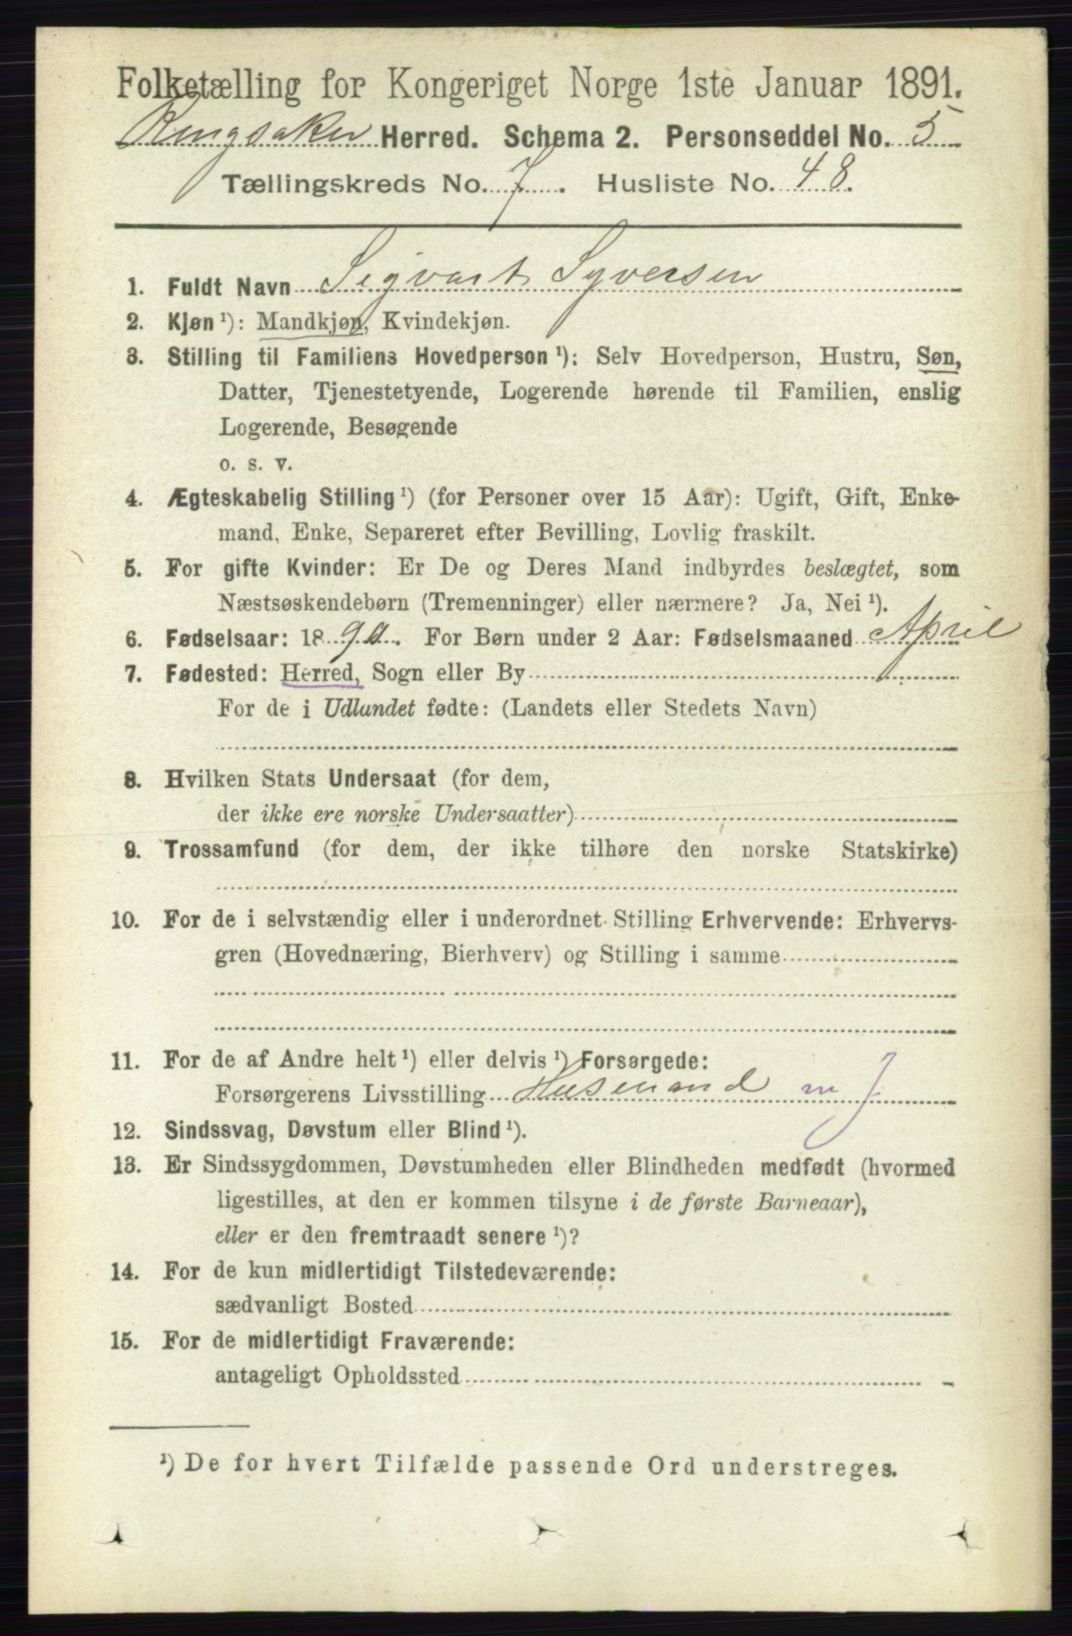 Folketælling for Kongeriget Norge 1ste Januar 1891.
Ringsaker Herred. Schema 2. Personseddel No. 5
Tællingskreds No. 7. Husliste No. 48.
1. Fuldt Navn Sigvart Syversen
2. Kjøn ¹): Mandkjøn, Kvindekjøn.
3. Stilling til Familiens Hovedperson ¹): Selv Hovedperson, Hustru, Søn,
Datter, Tjenestetyende, Logerende hørende til Familien, enslig
Logerende, Besøgende
o. s. v.
4. Ægteskabelig Stilling ¹) (for Personer over 15 Aar): Ugift, Gift, Enke-
mand, Enke, Separeret efter Bevilling, Lovlig fraskilt.
5. For gifte Kvinder: Er De og Deres Mand indbyrdes beslægtet, som
Næstsøskendebørn (Tremenninger) eller nærmere? Ja, Nei ¹).
6. Fødselsaar: 1890. For Børn under 2 Aar: Fødselsmaaned April
7. Fødested: Herred, Sogn eller By
For de i Udlandet fødte: (Landets eller Stedets Navn)
8. Hvilken Stats Undersaat (for dem,
der ikke ere norske Undersaatter)
9. Trossamfund (for dem, der ikke tilhøre den norske Statskirke)
10. For de i selvstændig eller i underordnet Stilling Erhvervende: Erhvervs-
gren (Hovednæring, Bierhverv) og Stilling i samme
11. For de af Andre helt ¹) eller delvis ¹) Forsørgede:
Forsørgerens Livsstilling Husmand m J
12. Sindssvag, Døvstum eller Blind ¹).
13. Er Sindssygdommen, Døvstumheden eller Blindheden medfødt (hvormed
ligestilles, at den er kommen tilsyne i de første Barneaar),
eller er den fremtraadt senere ¹)?
14. For de kun midlertidigt Tilstedeværende:
sædvanligt Bosted
15. For de midlertidigt Fraværende:
antageligt Opholdssted
¹) De for hvert Tilfælde passende Ord understreges.